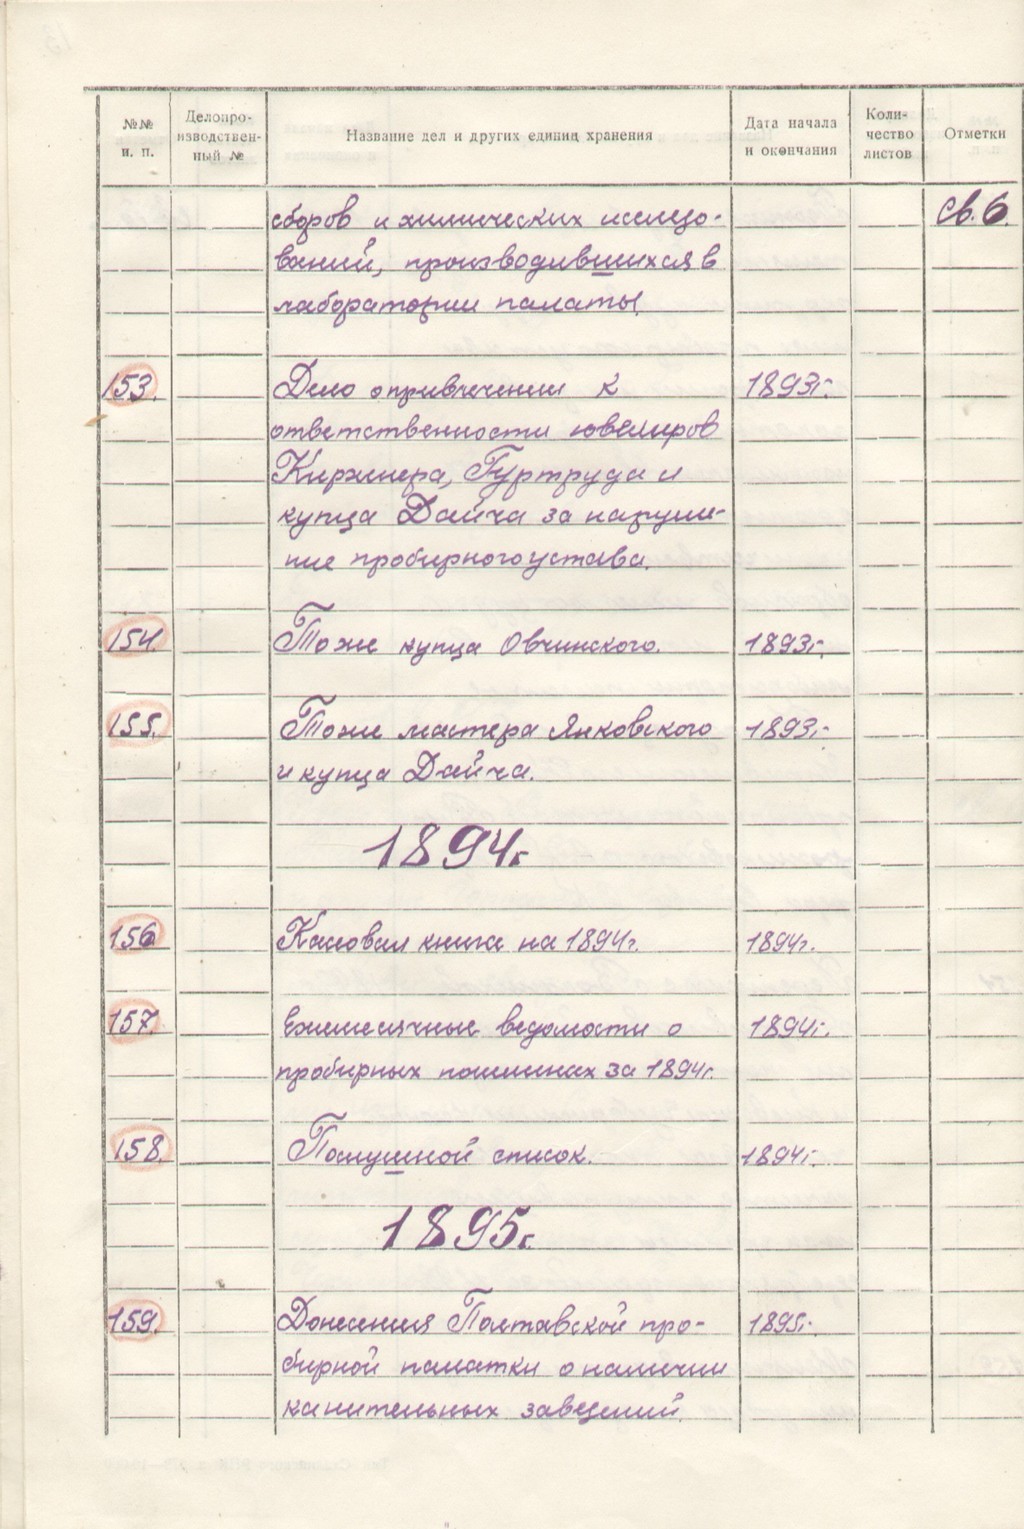 №№ п. п.
Делопро-
изводствен-
ный №
Название дел и других единиц хранения
Дата начала
и окончания
Коли-
чество
листов
Отметки
сборов и химических исследо-
ваний, производившихся в
лаборатории палаты.
св. 6.
153. Дело о привлечении к 1893г.
ответственности ювелиров
Киржнера, Гуртруда и
купца Дайча за наруше-
ние пробирного устава.
154. То же купца Овчинского. 1893г.
155. То же мастера Янковского 1893г.
и купца Дайча.
1894г
156 Кассовая книга на 1894г. 1894г.
157. Ежемесячные ведомости о 1894г.
пробирных пошлинах за 1894г.
158. Послушной список. 1894г.
1895г.
159. Донесения Полтавской про- 1895г.
бирной палатки о наличии
канительных заведений.